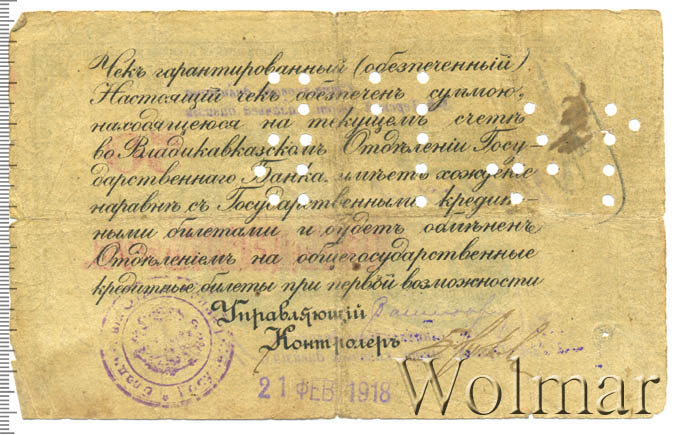 Чекъ гарантированный (обезпеченный)
Настоящій чекъ обезпеченъ суммою,
находящеюся на текущемъ счетѣ
во Владикавказскомъ Отдѣленіи Госу-
дарственнаго Банка, имѣетъ хожденіе
наравнѣ съ Государственными кредит-
ными билетами и будетъ обмѣненъ
Отдѣленіемъ на общегосударственные
кредитные билеты при первой возможности
Управляющій
Контролеръ
21 ФЕВ 1918
Wolmar